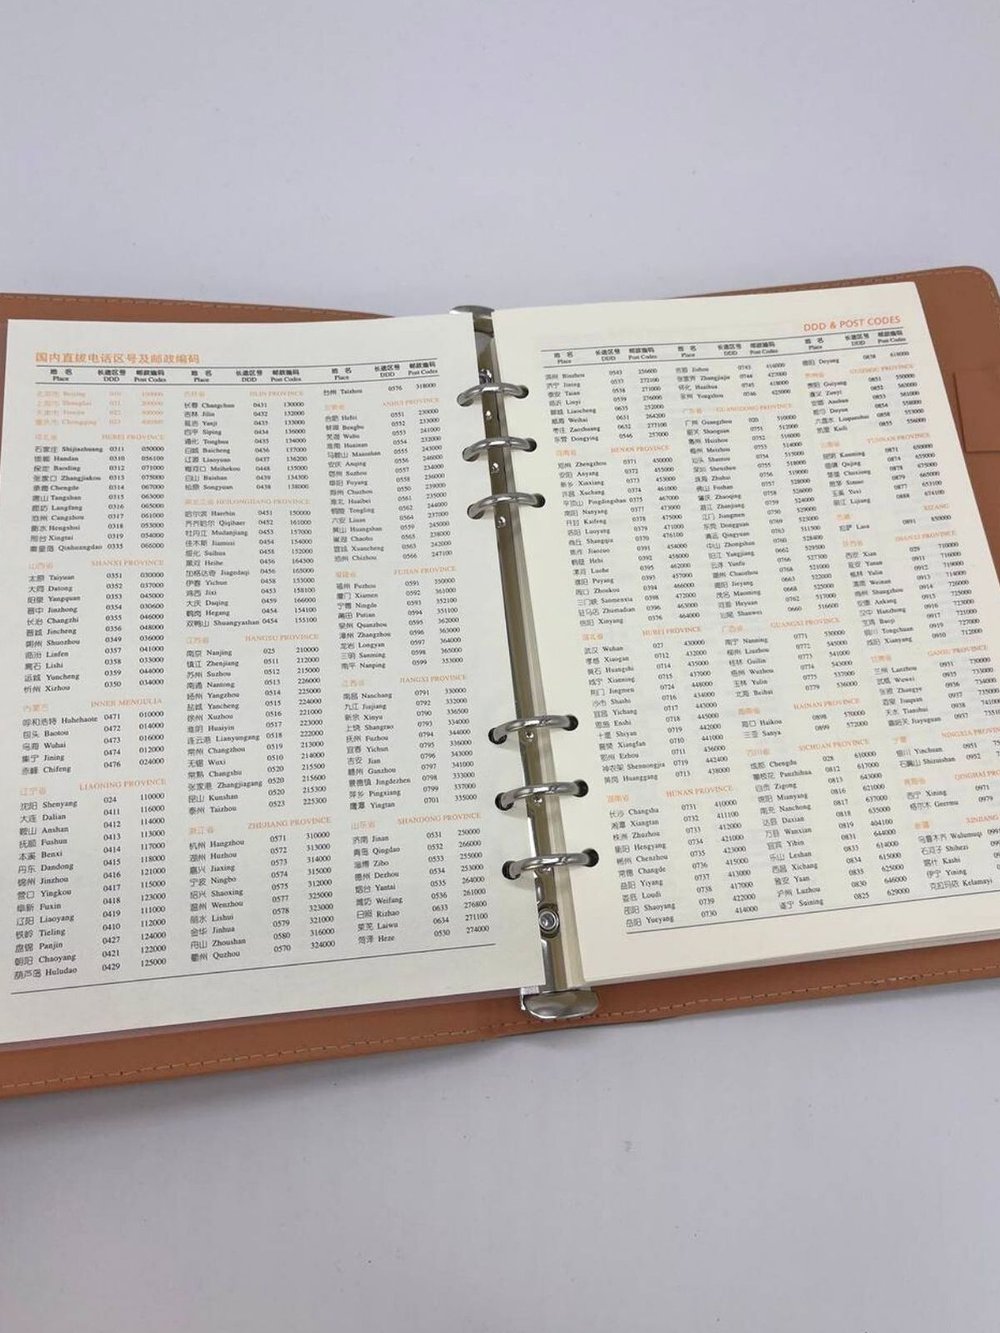 国内直拨电话区号及邮政编码
地 名 长途区号 邮政编码
Place DDD Post Codes
河北省 HEBEI PROVINCE
石家庄 Shijiazhuang 0311 050000
邯郸 Handan 0310 056100
保定 Baoding 0312 071000
张家口 Zhangjiakou 0313 075000
承德 Chengde 0314 067000
唐山 Tangshan 0315 063000
廊坊 Langfang 0316 065000
沧州 Cangzhou 0317 061000
衡水 Hengshui 0318 053000
邢台 Xingtai 0319 054000
秦皇岛 Qinhuangdao 0335 066000
山西省 SHANXI PROVINCE
太原 Taiyuan 0351 030000
大同 Datong 0352 037000
阳泉 Yangquan 0353 045000
晋中 Jinzhong 0354 030600
长治 Changzhi 0355 046000
晋城 Jincheng 0356 048000
朔州 Shuozhou 0349 036000
临汾 Linfen 0357 041000
离石 Lishi 0358 033000
运城 Yuncheng 0359 044000
忻州 Xizhou 0350 034000
内蒙古 INNER MENGULIA
呼和浩特 Huhehaote 0471 010000
包头 Baotou 0472 014000
乌海 Wuhai 0473 016000
集宁 Jining 0474 012000
赤峰 Chifeng 0476 024000
辽宁省 LIAONING PROVINCE
沈阳 Shenyang 024 110000
大连 Dalian 0411 116000
鞍山 Anshan 0412 114000
抚顺 Fushun 0413 113000
本溪 Benxi 0414 117000
丹东 Dandong 0415 118000
锦州 Jinzhou 0416 121000
营口 Yingkou 0417 115000
阜新 Fuxin 0418 123000
辽阳 Liaoyang 0419 111000
铁岭 Tieling 0410 112000
盘锦 Panjin 0427 124000
朝阳 Chaoyang 0421 122000
葫芦岛 Huludao 0429 125000
地 名 长途区号 邮政编码
Place DDD Post Codes
吉林省 JILIN PROVINCE
长春 Changchun 0431 130000
吉林 Jilin 0432 132000
延吉 Yanji 0433 133000
四平 Siping 0434 136000
通化 Tonghua 0435 134000
白城 Baicheng 0436 137000
辽源 Liaoyuan 0437 136200
梅河口 Meihekou 0448 135000
白山 Baishan 0439 134300
松原 Songyuan 0438 138000
黑龙江省 HEILONGJIANG PROVINCE
哈尔滨 Haerbin 0451 150000
齐齐哈尔 Qiqihaer 0452 161000
牡丹江 Mudanjiang 0453 157000
佳木斯 Jiamusi 0454 154000
绥化 Suihua 0458 152000
黑河 Heihe 0456 164300
加格达奇 Jiagedaqi 0456 165000
伊春 Yichun 0458 153000
鸡西 Jixi 0453 158100
大庆 Daqing 0459 166000
鹤岗 Hegang 0454 154100
双鸭山 Shuangyashan 0454 155100
江苏省 JIANGSU PROVINCE
南京 Nanjing 025 210000
镇江 Zhenjiang 0511 212000
苏州 Suzhou 0512 215000
南通 Nantong 0513 226000
扬州 Yangzhou 0514 225000
盐城 Yancheng 0515 224000
徐州 Xuzhou 0516 221000
淮阴 Huaiyin 0517 223000
连云港 Lianyungang 0518 222000
常州 Changzhou 0519 213000
无锡 Wuxi 0510 214000
常熟 Changshu 0520 215500
张家港 Zhangjiagang 0520 215600
昆山 Kunshan 0520 215300
泰州 Taizhou 0523 225300
浙江省 ZHEJIANG PROVINCE
杭州 Hangzhou 0571 310000
湖州 Huzhou 0572 313000
嘉兴 Jiaxing 0573 314000
宁波 Ningbo 0574 315000
绍兴 Shaoxing 0575 312000
温州 Wenzhou 0577 325000
丽水 Lishui 0578 323000
金华 Jinhua 0579 321000
舟山 Zhoushan 0580 316000
衢州 Quzhou 0570 324000
地 名 长途区号 邮政编码
Place DDD Post Codes
台州 Taizhou 0576 318000
安徽省 ANHUI PROVINCE
合肥 Hefei 0551 230000
蚌埠 Bengbu 0552 233000
芜湖 Wuhu 0553 241000
淮南 Huainan 0554 232000
马鞍山 Maanshan 0555 243000
安庆 Anqing 0556 246000
宿州 Suzhou 0557 234000
阜阳 Fuyang 0558 236000
滁州 Chuzhou 0550 239000
淮北 Huaibei 0561 235000
铜陵 Tongling 0562 244000
六安 Liuan 0564 237000
黄山 Huangshan 0559 245000
巢湖 Chaohu 0565 238000
宣城 Xuancheng 0563 242000
池州 Chizhou 0566 247100
福建省 FUJIAN PROVINCE
福州 Fuzhou 0591 350000
厦门 Xiamen 0592 361000
宁德 Ningde 0593 352100
莆田 Putian 0594 351100
泉州 Quanzhou 0595 362000
漳州 Zhangzhou 0596 363000
龙岩 Longyan 0597 364000
三明 Sanming 0598 365000
南平 Nanping 0599 353000
江西省 JIANGXI PROVINCE
南昌 Nanchang 0791 330000
九江 Jiujiang 0792 332000
新余 Xinyu 0790 336500
上饶 Shangrao 0793 334000
抚州 Fuzhou 0794 344000
宜春 Yichun 0795 336000
吉安 Jian 0796 343000
赣州 Ganzhou 0797 341000
景德镇 Jingdezhen 0798 333000
萍乡 Pingxiang 0799 337000
鹰潭 Yingtan 0701 335000
山东省 SHANDONG PROVINCE
济南 Jinan 0531 250000
青岛 Qingdao 0532 266000
淄博 Zibo 0533 255000
德州 Dezhou 0534 253000
烟台 Yantai 0535 264000
潍坊 Weifang 0536 261000
日照 Rizhao 0633 276800
莱芜 Laiwu 0634 271100
菏泽 Heze 0530 274000
DDD & POST CODES
地 名 长途区号 邮政编码
Place DDD Post Codes
滨州 Binzhou 0543 256600
济宁 Jining 0537 272100
泰安 Taian 0538 271000
临沂 Linyi 0539 276000
聊城 Liaocheng 0635 252000
威海 Weihai 0631 264200
枣庄 Zaozhuang 0632 277100
东营 Dongying 0546 257000
河南省 HENAN PROVINCE
郑州 Zhengzhou 0371 450000
安阳 Anyang 0372 455000
新乡 Xinxiang 0373 453000
许昌 Xuchang 0374 461000
平顶山 Pingdingshan 0375 467000
南阳 Nanyang 0377 473000
开封 Kaifeng 0378 475000
洛阳 Luoyang 0379 471000
商丘 Shangqiu 0370 476100
焦作 Jiaozuo 0391 454000
鹤壁 Hebi 0392 456600
漯河 Luohe 0395 462000
濮阳 Puyang 0393 457000
周口 Zhoukou 0394 466000
三门峡 Sanmenxia 0398 472000
驻马店 Zhumadian 0396 463000
信阳 Xinyang 0376 464000
湖北省 HUBEI PROVINCE
武汉 Wuhan 027 430000
孝感 Xiaogan 0712 432000
黄石 Huangshi 0714 435000
咸宁 Xianning 0715 437000
荆门 Jingmen 0724 448000
沙市 Shashi 0716 434000
宜昌 Yichang 0717 443000
恩施 Enshi 0718 445000
十堰 Shiyan 0719 442000
襄樊 Xiangfan 0710 441000
鄂州 Ezhou 0711 436000
神农架 Shennongjia 0719 442400
黄岗 Huanggang 0713 438000
湖南省 HUNAN PROVINCE
长沙 Changsha 0731 410000
湘潭 Xiangtan 0732 411100
株洲 Zhuzhou 0733 412000
衡阳 Hengyang 0734 421000
郴州 Chenzhou 0735 423000
常德 Changde 0736 415000
益阳 Yiyang 0737 413000
娄底 Loudi 0738 417000
邵阳 Shaoyang 0739 422000
岳阳 Yueyang 0730 414000
地 名 长途区号 邮政编码
Place DDD Post Codes
吉首 Jishou 0743 416000
张家界 Zhangjiajie 0744 427000
怀化 Huaihua 0745 418000
永州 Yongzhou 0746 425000
广东省 GUANGDONG PROVINCE
广州 Guangzhou 020 510000
韶关 Shaoguan 0751 512000
惠州 Huizhou 0752 516000
梅州 Meizhou 0753 514000
汕头 Shantou 0754 515000
深圳 Shenzhen 0755 518000
珠海 Zhuhai 0756 519000
佛山 Foshan 0757 528000
肇庆 Zhaoqing 0758 526000
湛江 Zhanjiang 0759 524000
江门 Jiangmen 0750 529000
东莞 Dongguan 0769 523000
清远 Qingyuan 0763 511500
中山 Zhongshan 0760 528400
阳江 Yangjiang 0662 529500
云浮 Yunfu 0766 527300
潮州 Chaozhou 0768 521000
揭阳 Jieyang 0663 522000
茂名 Maoming 0668 525000
河源 Heyuan 0762 517000
汕尾 Shanwei 0660 516600
广西省 GUANGXI PROVINCE
南宁 Nanning 0771 530000
柳州 Liuzhou 0772 545000
桂林 Guilin 0773 541000
梧州 Wuzhou 0774 543000
玉林 Yulin 0775 537000
北海 Beihai 0779 536000
海南省 HAINAN PROVINCE
海口 Haikou 0898 570000
三亚 Sanya 0899 572000
四川省 SICHUAN PROVINCE
成都 Chengdu 028 610000
攀枝花 Panzhihua 0812 617000
自贡 Zigong 0813 643000
绵阳 Mianyang 0816 621000
南充 Nanchong 0817 637000
达县 Daxian 0818 635000
万县 Wanxian 0819 404100
宜宾 Yibin 0831 644000
乐山 Leshan 0833 614000
西昌 Xichang 0834 615000
雅安 Yaan 0835 625000
泸州 Luzhou 0830 646000
遂宁 Suining 0825 629000
地 名 长途区号 邮政编码
Place DDD Post Codes
德阳 Deyang 0838 618000
GUIZHOU PROVINCE
贵阳 Guiyang 0851 550000
遵义 Zunyi 0852 563000
安顺 Anshun 0853 561000
都匀 Duyun 0854 558000
六盘水 Liupanshui 0858 553000
凯里 Kaili 0855 556000
YUNNAN PROVINCE
昆明 Kunming 0871 650000
曲靖 Qujing 0874 655000
楚雄 Chuxiong 0878 675000
思茅 Simao 0879 665000
玉溪 Yuxi 0877 653100
丽江 Lijiang 0888 674100
西藏 XIZANG
拉萨 Lasa 0891 850000
SHANXI PROVINCE
西安 Xian 029 710000
延安 Yanan 0911 716000
榆林 Yulin 0912 719000
渭南 Weinan 0913 714000
商州 Shangzhou 0914 726000
安康 Ankang 0915 725000
汉中 Hanzhong 0916 723000
宝鸡 Baoji 0917 721000
铜川 Tongchuan 0919 727000
咸阳 Xianyang 0910 712000
GANSU PROVINCE
兰州 Lanzhou 0931 730000
武威 Wuwei 0935 733000
张掖 Zhangye 0936 734000
酒泉 Jiuquan 0937 735000
天水 Tianshui 0938 741000
嘉峪关 Jiayuguan 0937 735
NINGXIA PROVIN
银川 Yinchuan 0951
石嘴山 Shizuishan 0952
QINGHAI PRO
西宁 Xining 0971
格尔木 Geermu 0979
新疆 XINJIANG
乌鲁木齐 Wulumuqi
石河子 Shihezi
喀什 Kashi
伊宁 Yining
克拉玛依 Kelamayi